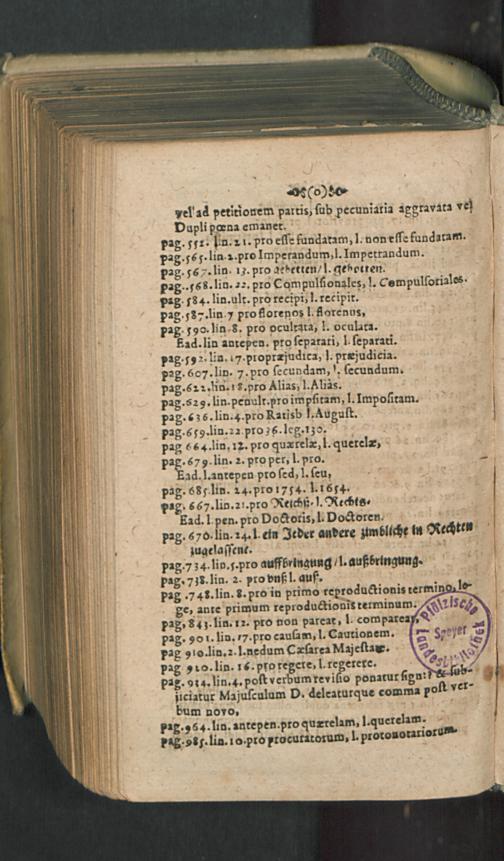 (o)
vel ad petitionem partis, sub pecuniaria aggravata vel
Dupli pœna emanet.
pag. 552. lin. 21. pro esse fundatam, l. non esse fundatam.
pag. 565. lin. 2. pro Imperandum, l. Impetrandum.
pag. 567. lin. 13. pro gebetten / l. gebotten.
pag. 568. lin. 22. pro Compulsionales, l. Compulsoriales.
pag. 584. lin. ult. pro recipi, l. recipit.
pag. 587. lin 7 pro florenos l. florenus,
pag. 590. lin 8. pro ocultata, l. oculata.
Ead. lin antepen. pro separari, l. separati.
pag. 592. lin. 17. propræjudica, l. præjudicia.
pag. 607. lin. 7. pro secundam, l. secundum.
pag. 622. lin. 18. pro Alias, l. Aliàs.
pag. 629. lin. penult. pro impsitam, l. Impositam.
pag. 636. lin. 4. pro Ratisb l. August.
pag. 659. lin. 22. pro 36. leg. 130.
pag 664. lin. 12. pro quærelæ, l. querelæ,
pag. 679. lin. 2. pro per, l. pro.
Ead. l. antepen pro sed, l. seu,
pag. 685. lin. 24. pro 1754. l. 1654.
pag. 667. lin. 21. pro Reichs. l. Rechts.
Ead. l. pen. pro Doctoris, l. Doctoren.
pag. 670. lin. 24. l. ein Jeder andere zimbliche in Rechten
zugelassene.
pag. 734. lin. 5. pro auffbringung / l. außbringung.
pag. 738. lin. 2. pro vnß l. auß.
pag. 748. lin. 8. pro in primo reproductionis termino, le-
ge, ante primum reproductionis terminum.
pag, 843. lin. 12. pro non pareat, l. compareat,
pag. 901. lin. 17. pro causam, l. Cautionem.
pag 910. lin. 2. l. nedum Cæsarea Majestate.
pag 920. lin. 16. pro regere, l. regerere.
pag. 914. lin. 4. post verbum revisio ponatur sign: ? & sub-
jiciatur Majusculum D. deleaturque comma post ver-
bum novo,
pag. 964. lin. antepen. pro quærelam, l. querelam.
pag. 985. lin. 10. pro procuratorum, l. protonotariorum.
Pfälzische
Landesbibliothek
Speyer